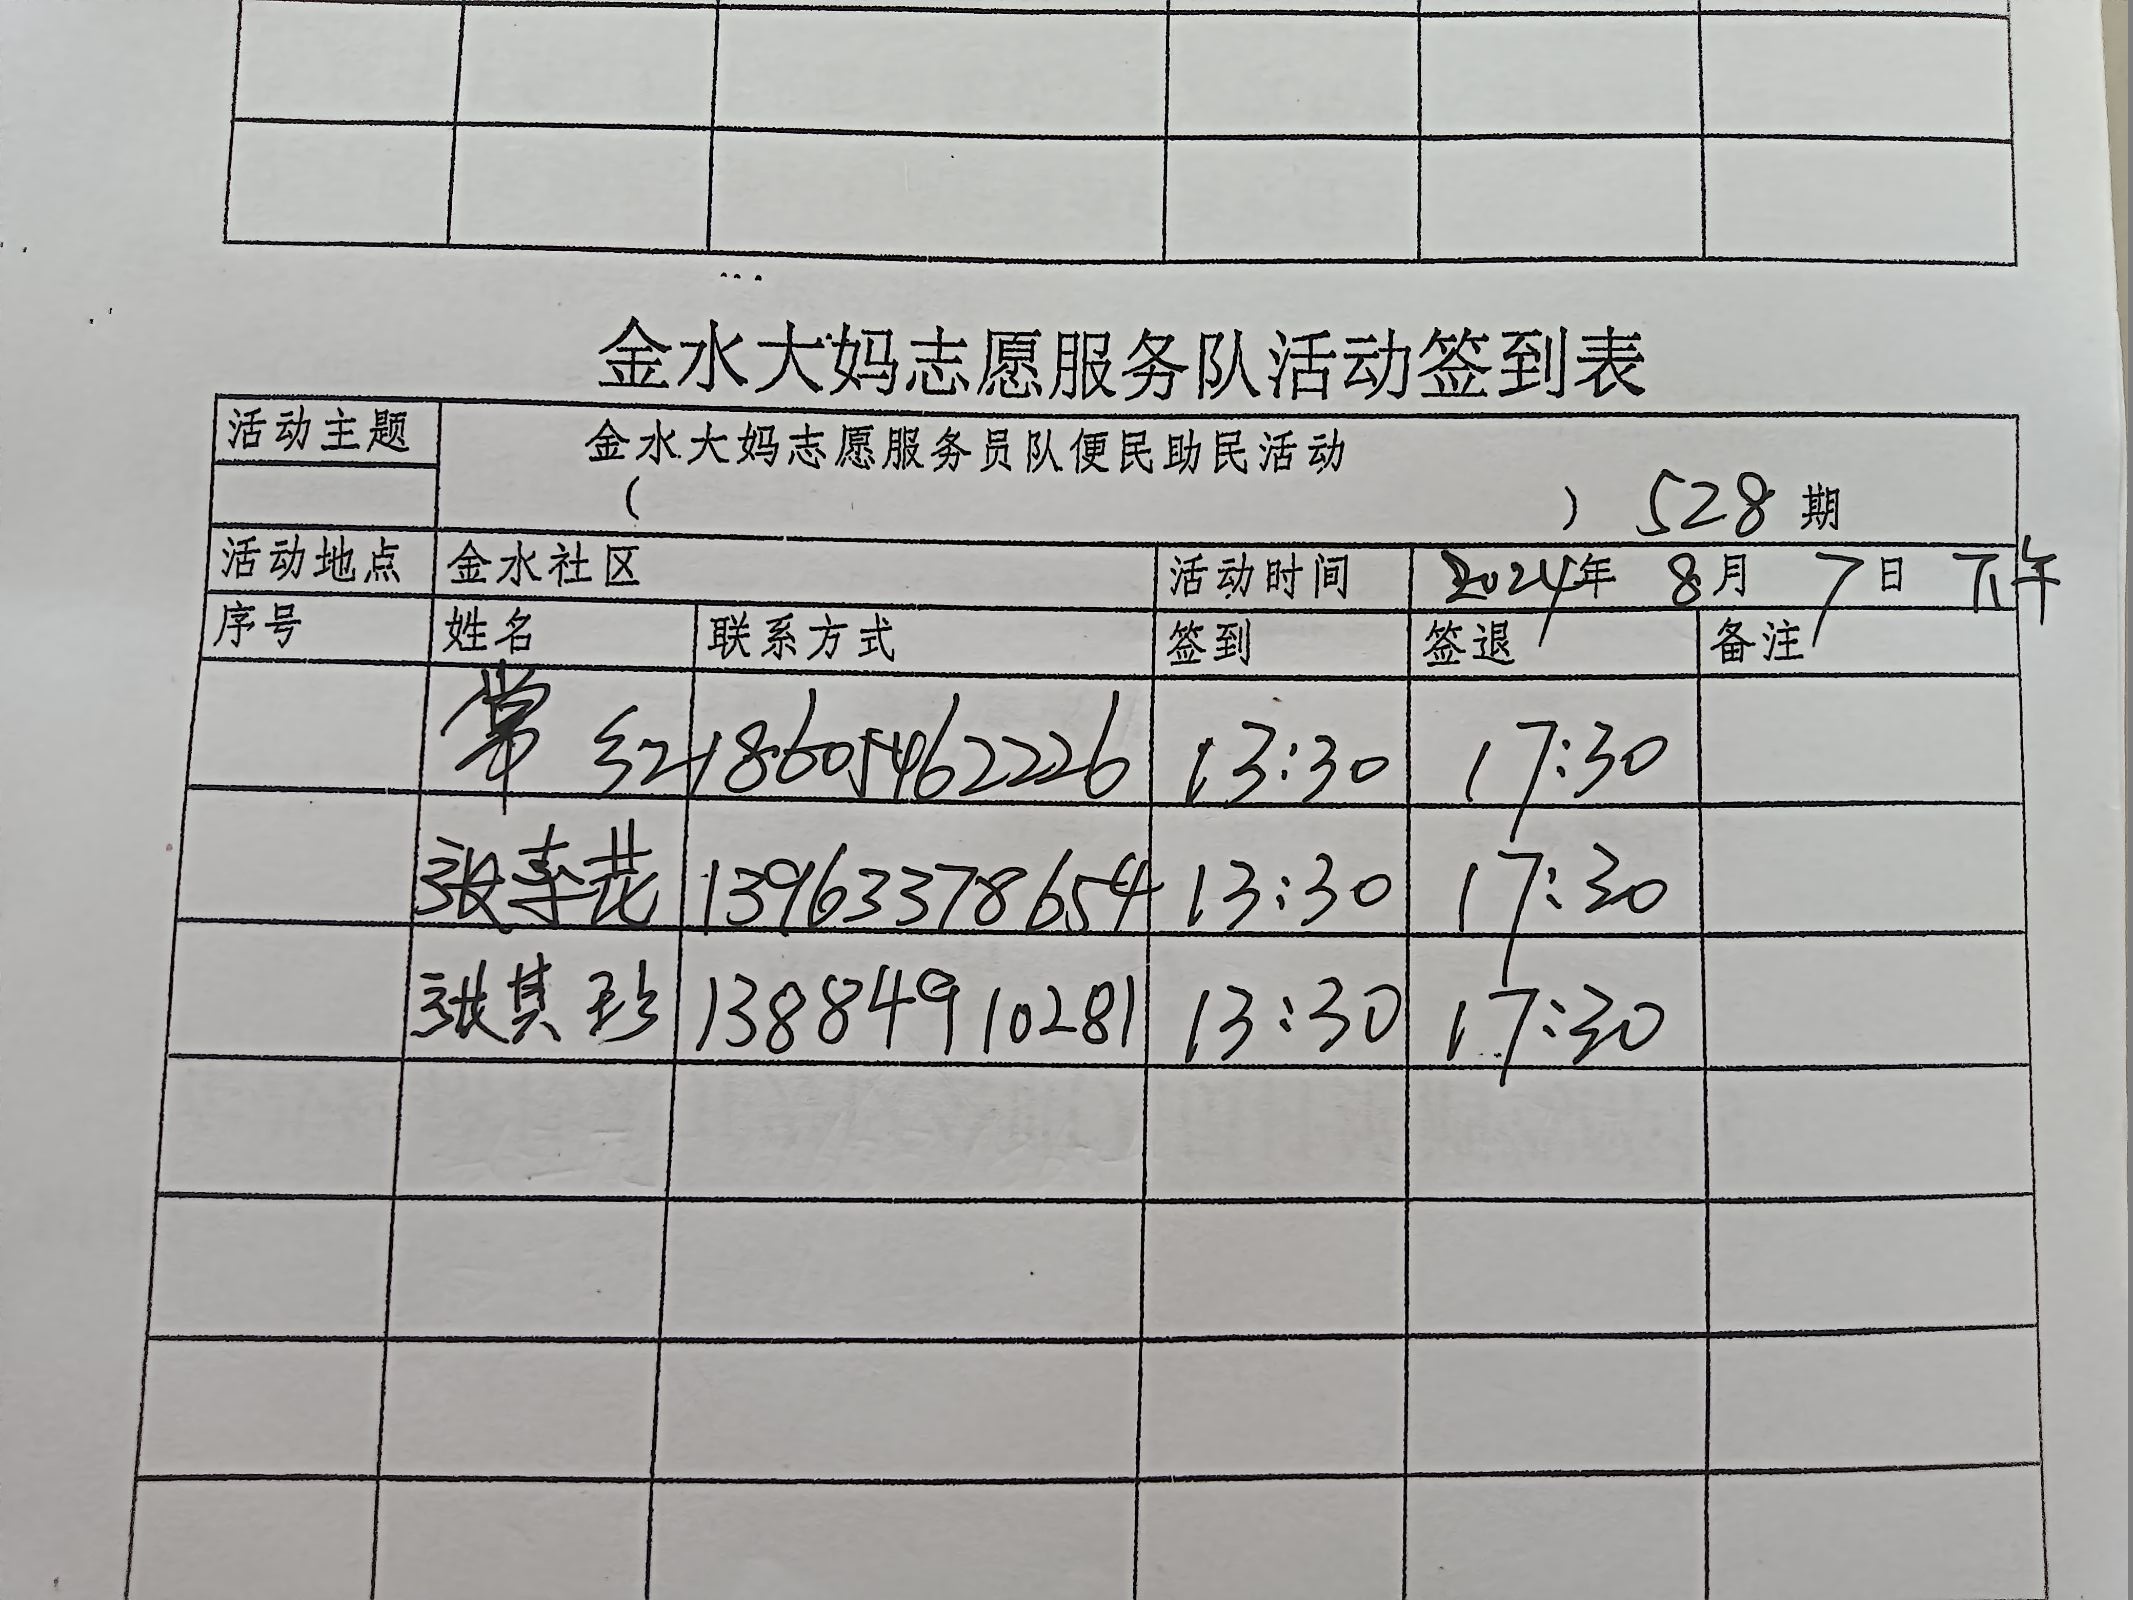 金水大妈志愿服务队活动签到表
活动主题 金水大妈志愿服务员队便民助民活动
( ) 528期
活动地点 金水社区 活动时间 2024年 8月 7日 下午
序号 姓名 联系方式 签到 签退 备注
常红 18605462226 13:30 17:30
张李花 13963378654 13:30 17:30
张其珍 13884910281 13:30 17:30